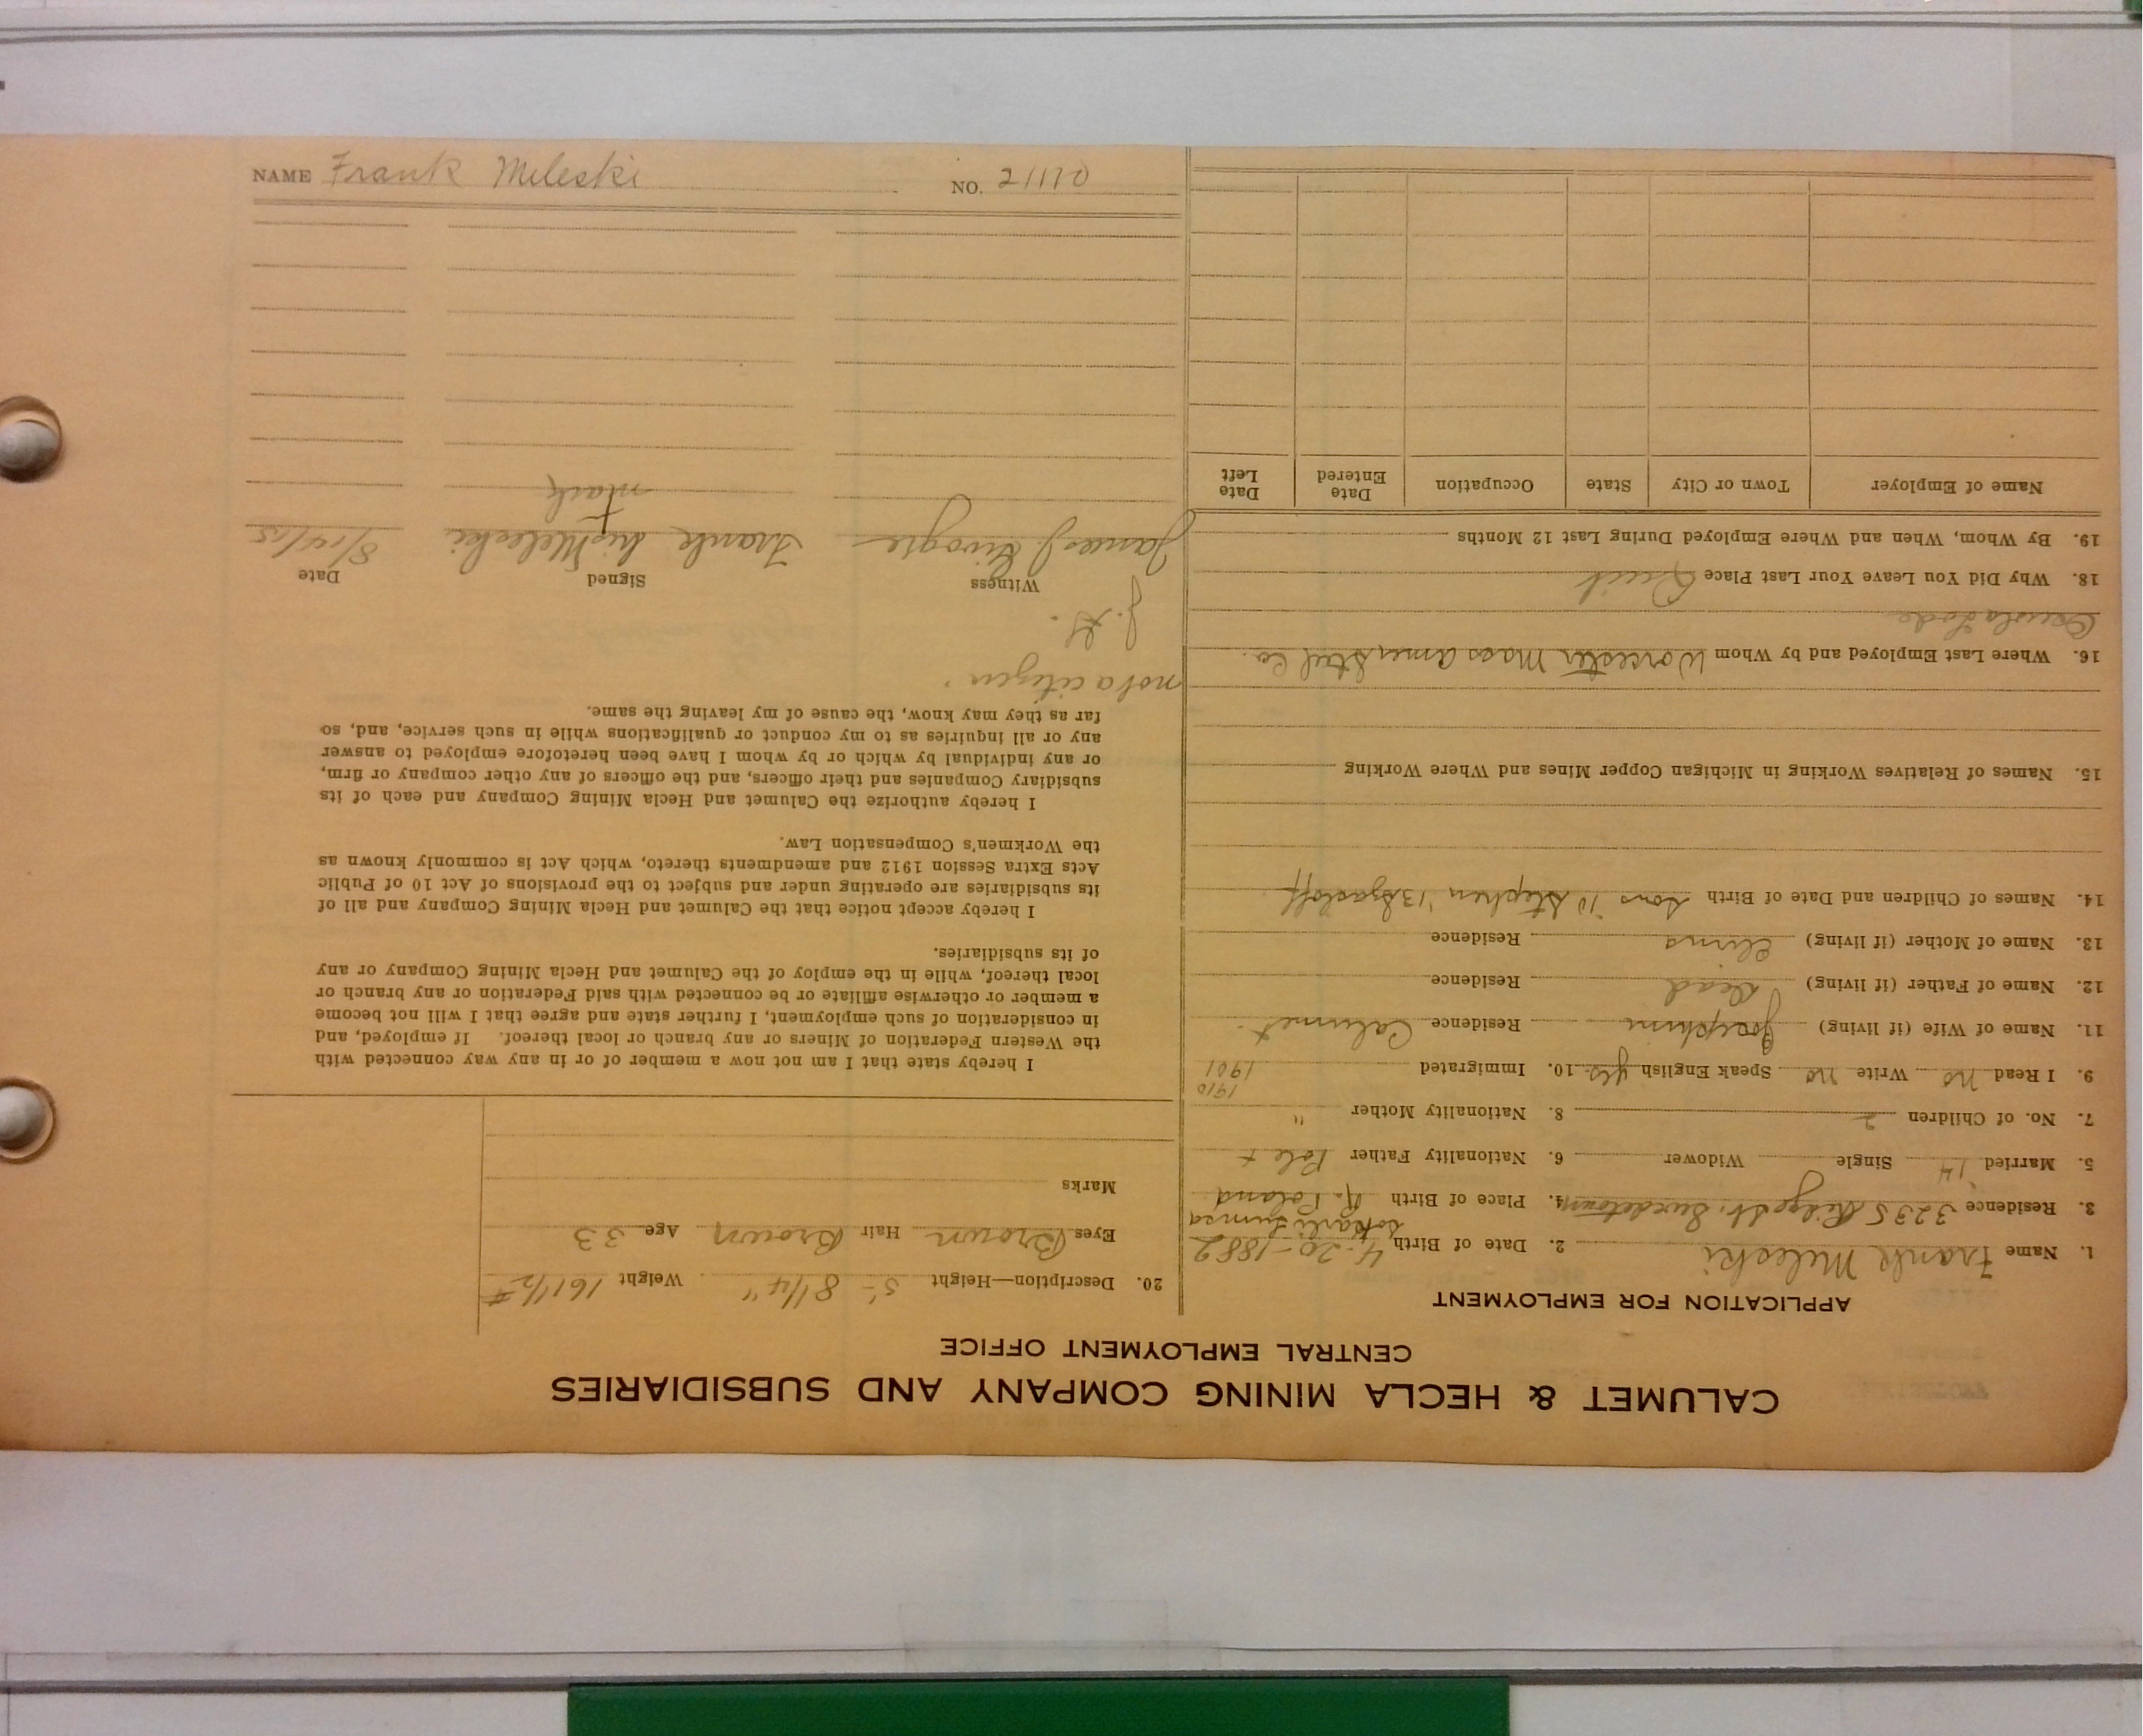 CALUMET & HECLA MINING COMPANY AND SUBSIDIARIES
CENTRAL EMPLOYMENT OFFICE
APPLICATION FOR EMPLOYMENT
1. Name Frank Meleski 2. Date of Birth 4-20-1882
3. Residence 3235 Ridge St. Swedetown 4. Place of Birth R. Poland
5. Married 14 Single Widower 6. Nationality Father Pole
7. No. of Children 2 8. Nationality Mother "
1910
9. I Read no Write no Speak English yes 10. Immigrated 1901
11. Name of Wife (if living) Josephine Residence Calumet
12. Name of Father (if living) Dead Residence
13. Name of Mother (if living) Residence
14. Names of Children and Date of Birth Sons '10 Stephen '13
15. Names of Relatives Working in Michigan Copper Mines and Where Working
16. Where Last Employed and by Whom Worcester Mass Amer Steel Co.
Osceola Lode
18. Why Did You Leave Your Last Place Quit
19. By Whom, When and Where Employed During Last 12 Months
Name of Employer Town or City State Occupation Date Entered Date Left
20. Description—Height 5'- 8 1/4" Weight 161 1/2 #
Eyes Brown Hair Brown Age 33
Marks
I hereby state that I am not now a member of or in any way connected with
the Western Federation of Miners or any branch or local thereof. If employed, and
in consideration of such employment, I further state and agree that I will not become
a member or otherwise affiliate or be connected with said Federation or any branch or
local thereof, while in the employ of the Calumet and Hecla Mining Company or any
of its subsidiaries.
I hereby accept notice that the Calumet and Hecla Mining Company and all of
its subsidiaries are operating under and subject to the provisions of Act 10 of Public
Acts Extra Session 1912 and amendments thereto, which Act is commonly known as
the Workmen's Compensation Law.
I hereby authorize the Calumet and Hecla Mining Company and each of its
subsidiary Companies and their officers, and the officers of any other company or firm,
or any individual by which or by whom I have been heretofore employed to answer
any or all inquiries as to my conduct or qualifications while in such service, and, so
far as they may know, the cause of my leaving the same.
not a citizen.
Witness Signed Date
James J Frank his Meleski
mark
NAME Frank Meleski NO. 21170